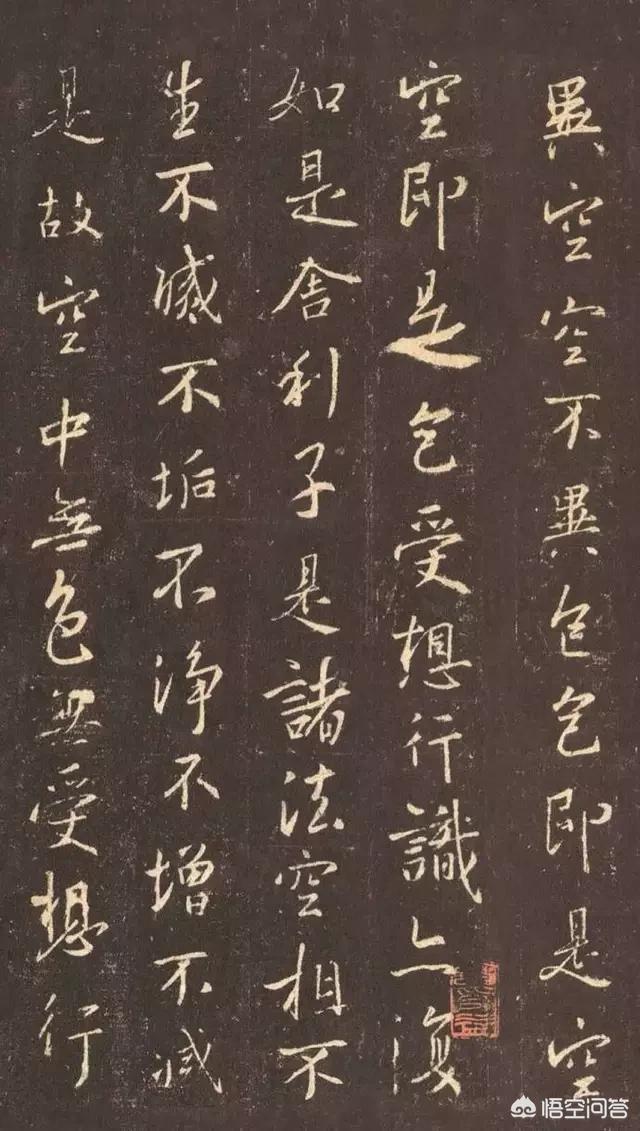 異空空不異色色即是空
空即是色受想行識亦復
如是舍利子是諸法空相不
生不滅不垢不淨不增不減
是故空中無色無受想行
悟空问答